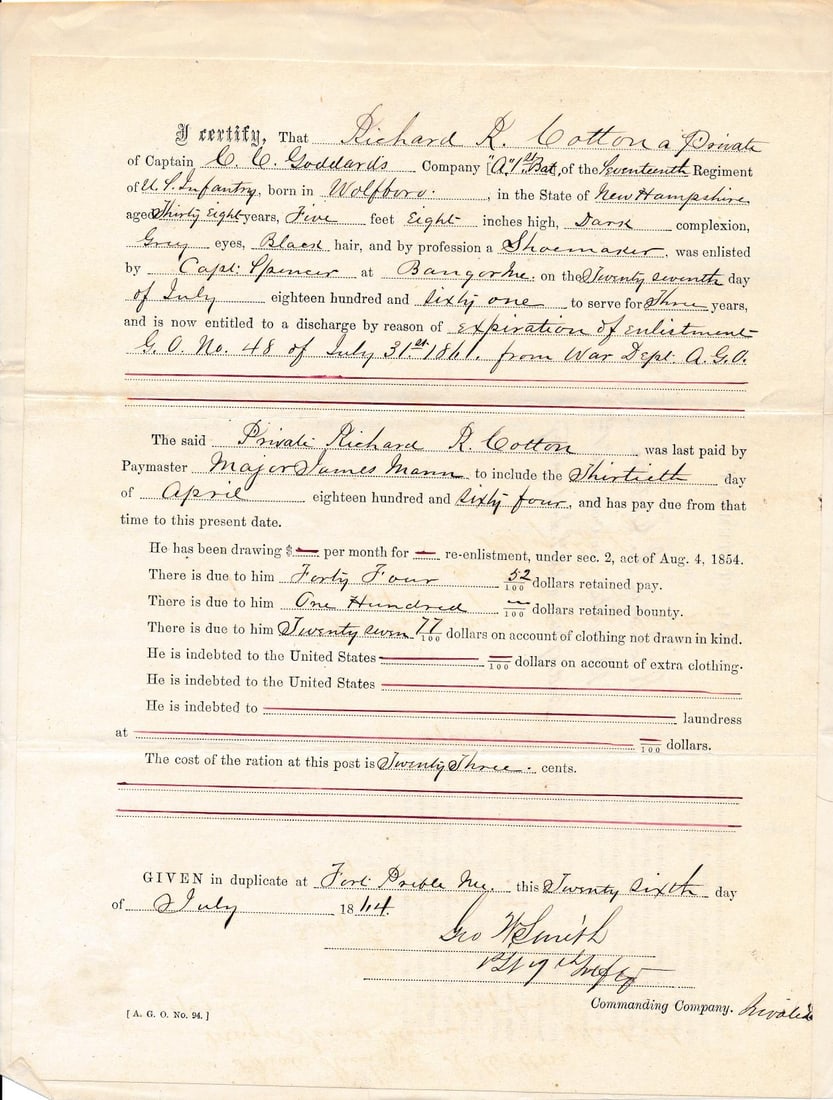 I certify, That Richard R. Cotton a Private
of Captain C. C. Goddards Company ["A," 1st Bat, of the Seventeenth Regiment
of U. S. Infantry, born in Wolfboro. , in the State of New Hampshire
aged Thirty Eight years, Five feet Eight inches high, Dark complexion,
Grey eyes, Black hair, and by profession a Shoemaker , was enlisted
by Capt. Spencer at Bangor Me. on the Twenty seventh day
of July eighteen hundred and sixty one to serve for Three years,
and is now entitled to a discharge by reason of expiration of enlistment
G. O. No. 48 of July 31st 1861. from War Dept. A. G. O.
The said Private Richard R. Cotton was last paid by
Paymaster Major James Mann to include the Thirtieth day
of April eighteen hundred and sixty four , and has pay due from that
time to this present date.
He has been drawing $ — per month for — re-enlistment, under sec. 2, act of Aug. 4, 1854.
There is due to him Forty Four 52/100 dollars retained pay.
There is due to him One Hundred —/100 dollars retained bounty.
There is due to him Twenty seven 77/100 dollars on account of clothing not drawn in kind.
He is indebted to the United States —/100 dollars on account of extra clothing.
He is indebted to the United States
He is indebted to laundress
at —/100 dollars.
The cost of the ration at this post is Twenty Three . cents.
GIVEN in duplicate at Fort Preble Me. this Twenty sixth day
of July 1864.
Geo W Smith
Commanding Company.
[ A. G. O. No. 94. ]